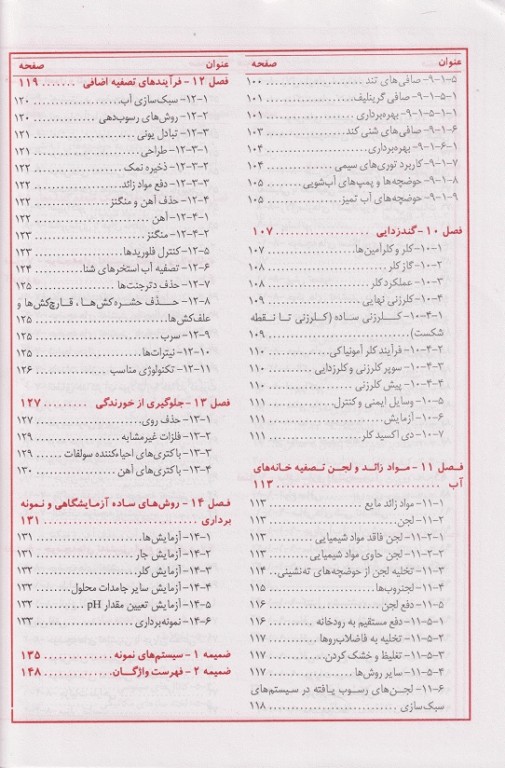 عنوان صفحه
۹-۱-۵- صافی‌های تند ۱۰۰
۹-۱-۵-۱- صافی گرینلیف ۱۰۱
۹-۱-۵-۱-۱- بهره‌برداری ۱۰۱
۹-۱-۶- صافی‌های شنی کند ۱۰۳
۹-۱-۶-۱- بهره‌برداری ۱۰۴
۹-۱-۷- کاربرد توری‌های سیمی ۱۰۴
۹-۱-۸- حوضچه‌ها و پمپ‌های آب‌شویی ۱۰۵
۹-۱-۹- حوضچه‌های آب تمیز ۱۰۵
فصل ۱۰- گندزدایی ۱۰۷
۱۰-۱- کلر و کلرآمین‌ها ۱۰۷
۱۰-۲- گاز کلر ۱۰۸
۱۰-۳- عملکرد کلر ۱۰۸
۱۰-۴- کلرزنی نهایی ۱۰۹
۱۰-۴-۱- کلرزنی ساده (کلرزنی تا نقطه
شکست) ۱۰۹
۱۰-۴-۲- فرآیند کلر آمونیاکی ۱۱۰
۱۰-۴-۳- سوپر کلرزنی و کلرزدایی ۱۱۰
۱۰-۴-۴- پیش کلرزنی ۱۱۰
۱۰-۵- وسایل ایمنی و کنترل ۱۱۱
۱۰-۶- آزمایش ۱۱۱
۱۰-۷- دی اکسید کلر ۱۱۱
فصل ۱۱- مواد زائد و لجن تصفیه خانه‌های
آب ۱۱۳
۱۱-۱- مواد زائد مایع ۱۱۳
۱۱-۲- لجن ۱۱۳
۱۱-۲-۱- لجن فاقد مواد شیمیایی ۱۱۳
۱۱-۲-۲- لجن حاوی مواد شیمیایی ۱۱۳
۱۱-۳- تخلیه لجن از حوضچه‌های ته‌نشینی ۱۱۴
۱۱-۴- لجنروب‌ها ۱۱۵
۱۱-۵- دفع لجن ۱۱۶
۱۱-۵-۱- دفع مستقیم به رودخانه ۱۱۶
۱۱-۵-۲- تخلیه به فاضلاب‌روها ۱۱۷
۱۱-۵-۳- تغلیظ و خشک کردن ۱۱۷
۱۱-۵-۴- سایر روش‌ها ۱۱۷
۱۱-۶- لجن‌های رسوب یافته در سیستم‌های
سبک‌سازی ۱۱۸
عنوان صفحه
فصل ۱۲- فرآیندهای تصفیه اضافی ۱۱۹
۱۲-۱- سبک‌سازی آب ۱۲۰
۱۲-۲- روش‌های رسوب‌دهی ۱۲۰
۱۲-۳- تبادل یونی ۱۲۱
۱۲-۳-۱- طراحی ۱۲۱
۱۲-۳-۲- ذخیره نمک ۱۲۲
۱۲-۳-۳- دفع مواد زائد ۱۲۲
۱۲-۴- حذف آهن و منگنز ۱۲۲
۱۲-۴-۱- آهن ۱۲۲
۱۲-۴-۲- منگنز ۱۲۳
۱۲-۵- کنترل فلوریدها ۱۲۳
۱۲-۶- تصفیه آب استخرهای شنا ۱۲۴
۱۲-۷- حذف دترجنت‌ها ۱۲۵
۱۲-۸- حذف حشره‌کش‌ها، قارچ‌کش‌ها و
علف‌کش‌ها ۱۲۵
۱۲-۹- سرب ۱۲۵
۱۲-۱۰- نیترات‌ها ۱۲۵
۱۲-۱۱- تکنولوژی مناسب ۱۲۶
فصل ۱۳- جلوگیری از خورندگی ۱۲۷
۱۳-۱- حذف روی ۱۲۷
۱۳-۲- فلزات غیرمشابه ۱۲۹
۱۳-۳- باکتری‌های احیاءکننده سولفات ۱۲۹
۱۳-۴- باکتری‌های آهن ۱۳۰
فصل ۱۴- روش‌های ساده آزمایشگاهی و نمونه
برداری ۱۳۱
۱۴-۱- آزمایش‌ها ۱۳۱
۱۴-۲- آزمایش جار ۱۳۱
۱۴-۳- آزمایش کلر ۱۳۱
۱۴-۴- آزمایش سایر جامدات محلول ۱۳۲
۱۴-۵- آزمایش تعیین مقدار pH ۱۳۲
۱۴-۶- نمونه‌برداری ۱۳۳
ضمیمه ۱- سیستم‌های نمونه ۱۳۵
ضمیمه ۲- فهرست واژگان ۱۴۸